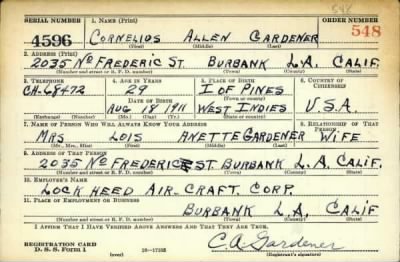 548
SERIAL NUMBER 1. NAME (Print) ORDER NUMBER
4596 CORNELIOS ALLEN GARDENER 548
(First) (Middle) (Last)
2. ADDRESS (Print)
2035 No FREDERIC ST. BURBANK L.A. CALIF.
(Number and street or R. F. D. number) (Town) (County) (State)
3. TELEPHONE 4. AGE IN YEARS 5. PLACE OF BIRTH 6. COUNTRY OF CITIZENSHIP
CH-69472 29 I OF PINES
DATE OF BIRTH (Town or county)
AUG 18 1911 WEST INDIES U.S.A.
(Exchange) (Number) (Mo.) (Day) (Yr.) (State or country)
7. NAME OF PERSON WHO WILL ALWAYS KNOW YOUR ADDRESS 8. RELATIONSHIP OF THAT PERSON
MRS LOIS ANETTE GARDENER WIFE
(Mr., Mrs., Miss) (First) (Middle) (Last)
9. ADDRESS OF THAT PERSON
2035 No FREDERIC ST. BURBANK L.A. CALIF.
(Number and street or R. F. D. number) (Town) (County) (State)
10. EMPLOYER'S NAME
LOCK HEED AIR-CRAFT. CORP.
11. PLACE OF EMPLOYMENT OR BUSINESS
BURBANK L.A. CALIF
(Number and street or R. F. D. number) (Town) (County) (State)
I AFFIRM THAT I HAVE VERIFIED ABOVE ANSWERS AND THAT THEY ARE TRUE.
REGISTRATION CARD
D. S. S. Form 1 (over) 16—17105 C A Gardener
(Registrant's signature)